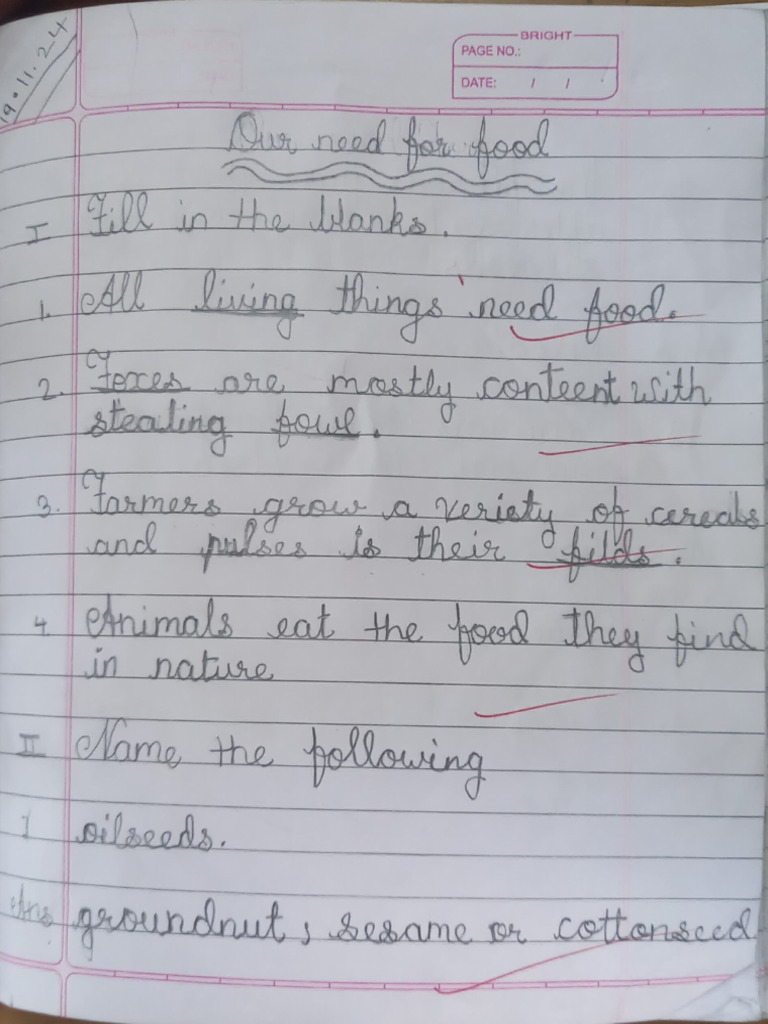 19.11.24
BRIGHT
PAGE NO.:
DATE: / /
Our need for food
I Fill in the blanks.
1. All living things need food.
2. Foxes are mostly conteent with
stealing fowl.
3. Farmers grow a veriety of cereals
and pulses is their filds.
4. Animals eat the food they find
in nature
II Name the following
1 oilseeds.
Ans groundnut, sesame or cottonseed